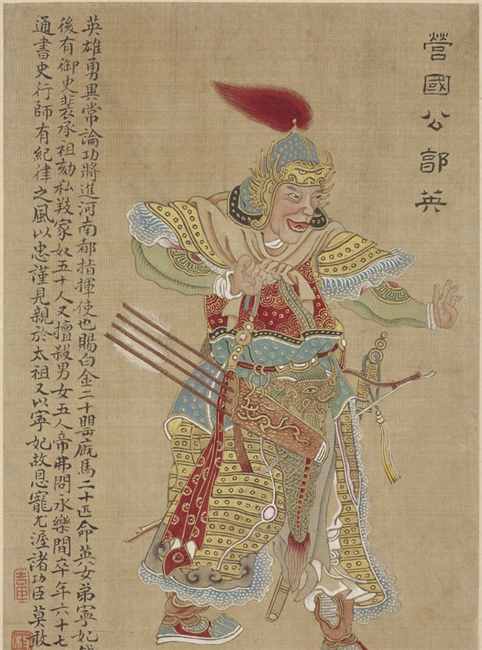 營國公郭英
英雄勇異常論功將進河南都指揮使也賜白金二十罌廄馬二十匹命英女弟寧妃
後有御史裴承祖劾私𢼝家奴五十人又擅殺男女五人帝弗問永樂間卒年六十七
通書史行師有紀律之風以忠謹見親於太祖又以寧妃故恩寵尤渥諸功臣莫敢